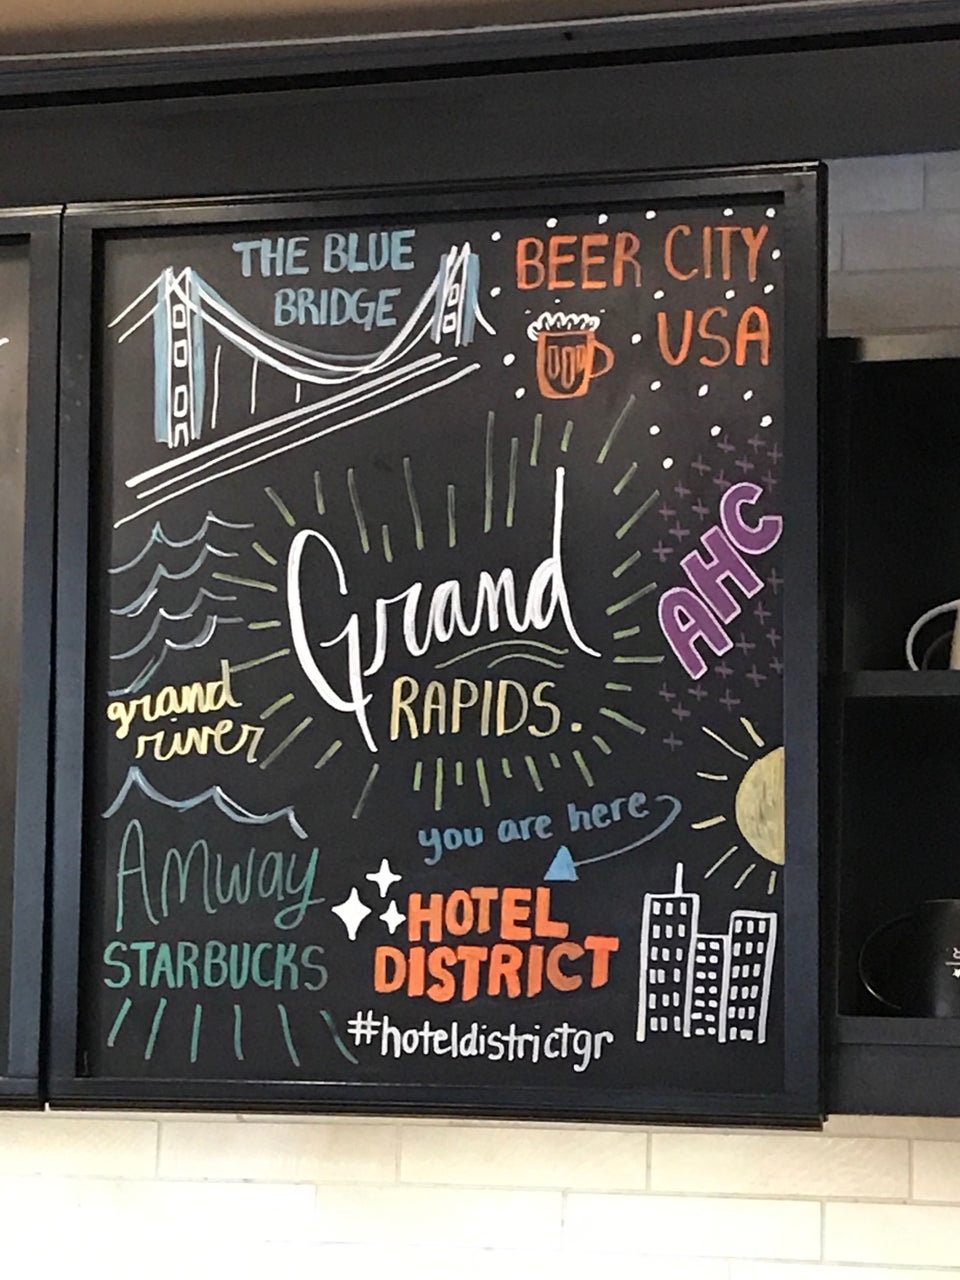 THE BLUE
BRIDGE
BEER CITY
USA
Grand
RAPIDS.
AHC
grand
river
you are here
Amway
STARBUCKS
HOTEL
DISTRICT
#hoteldistrictgr